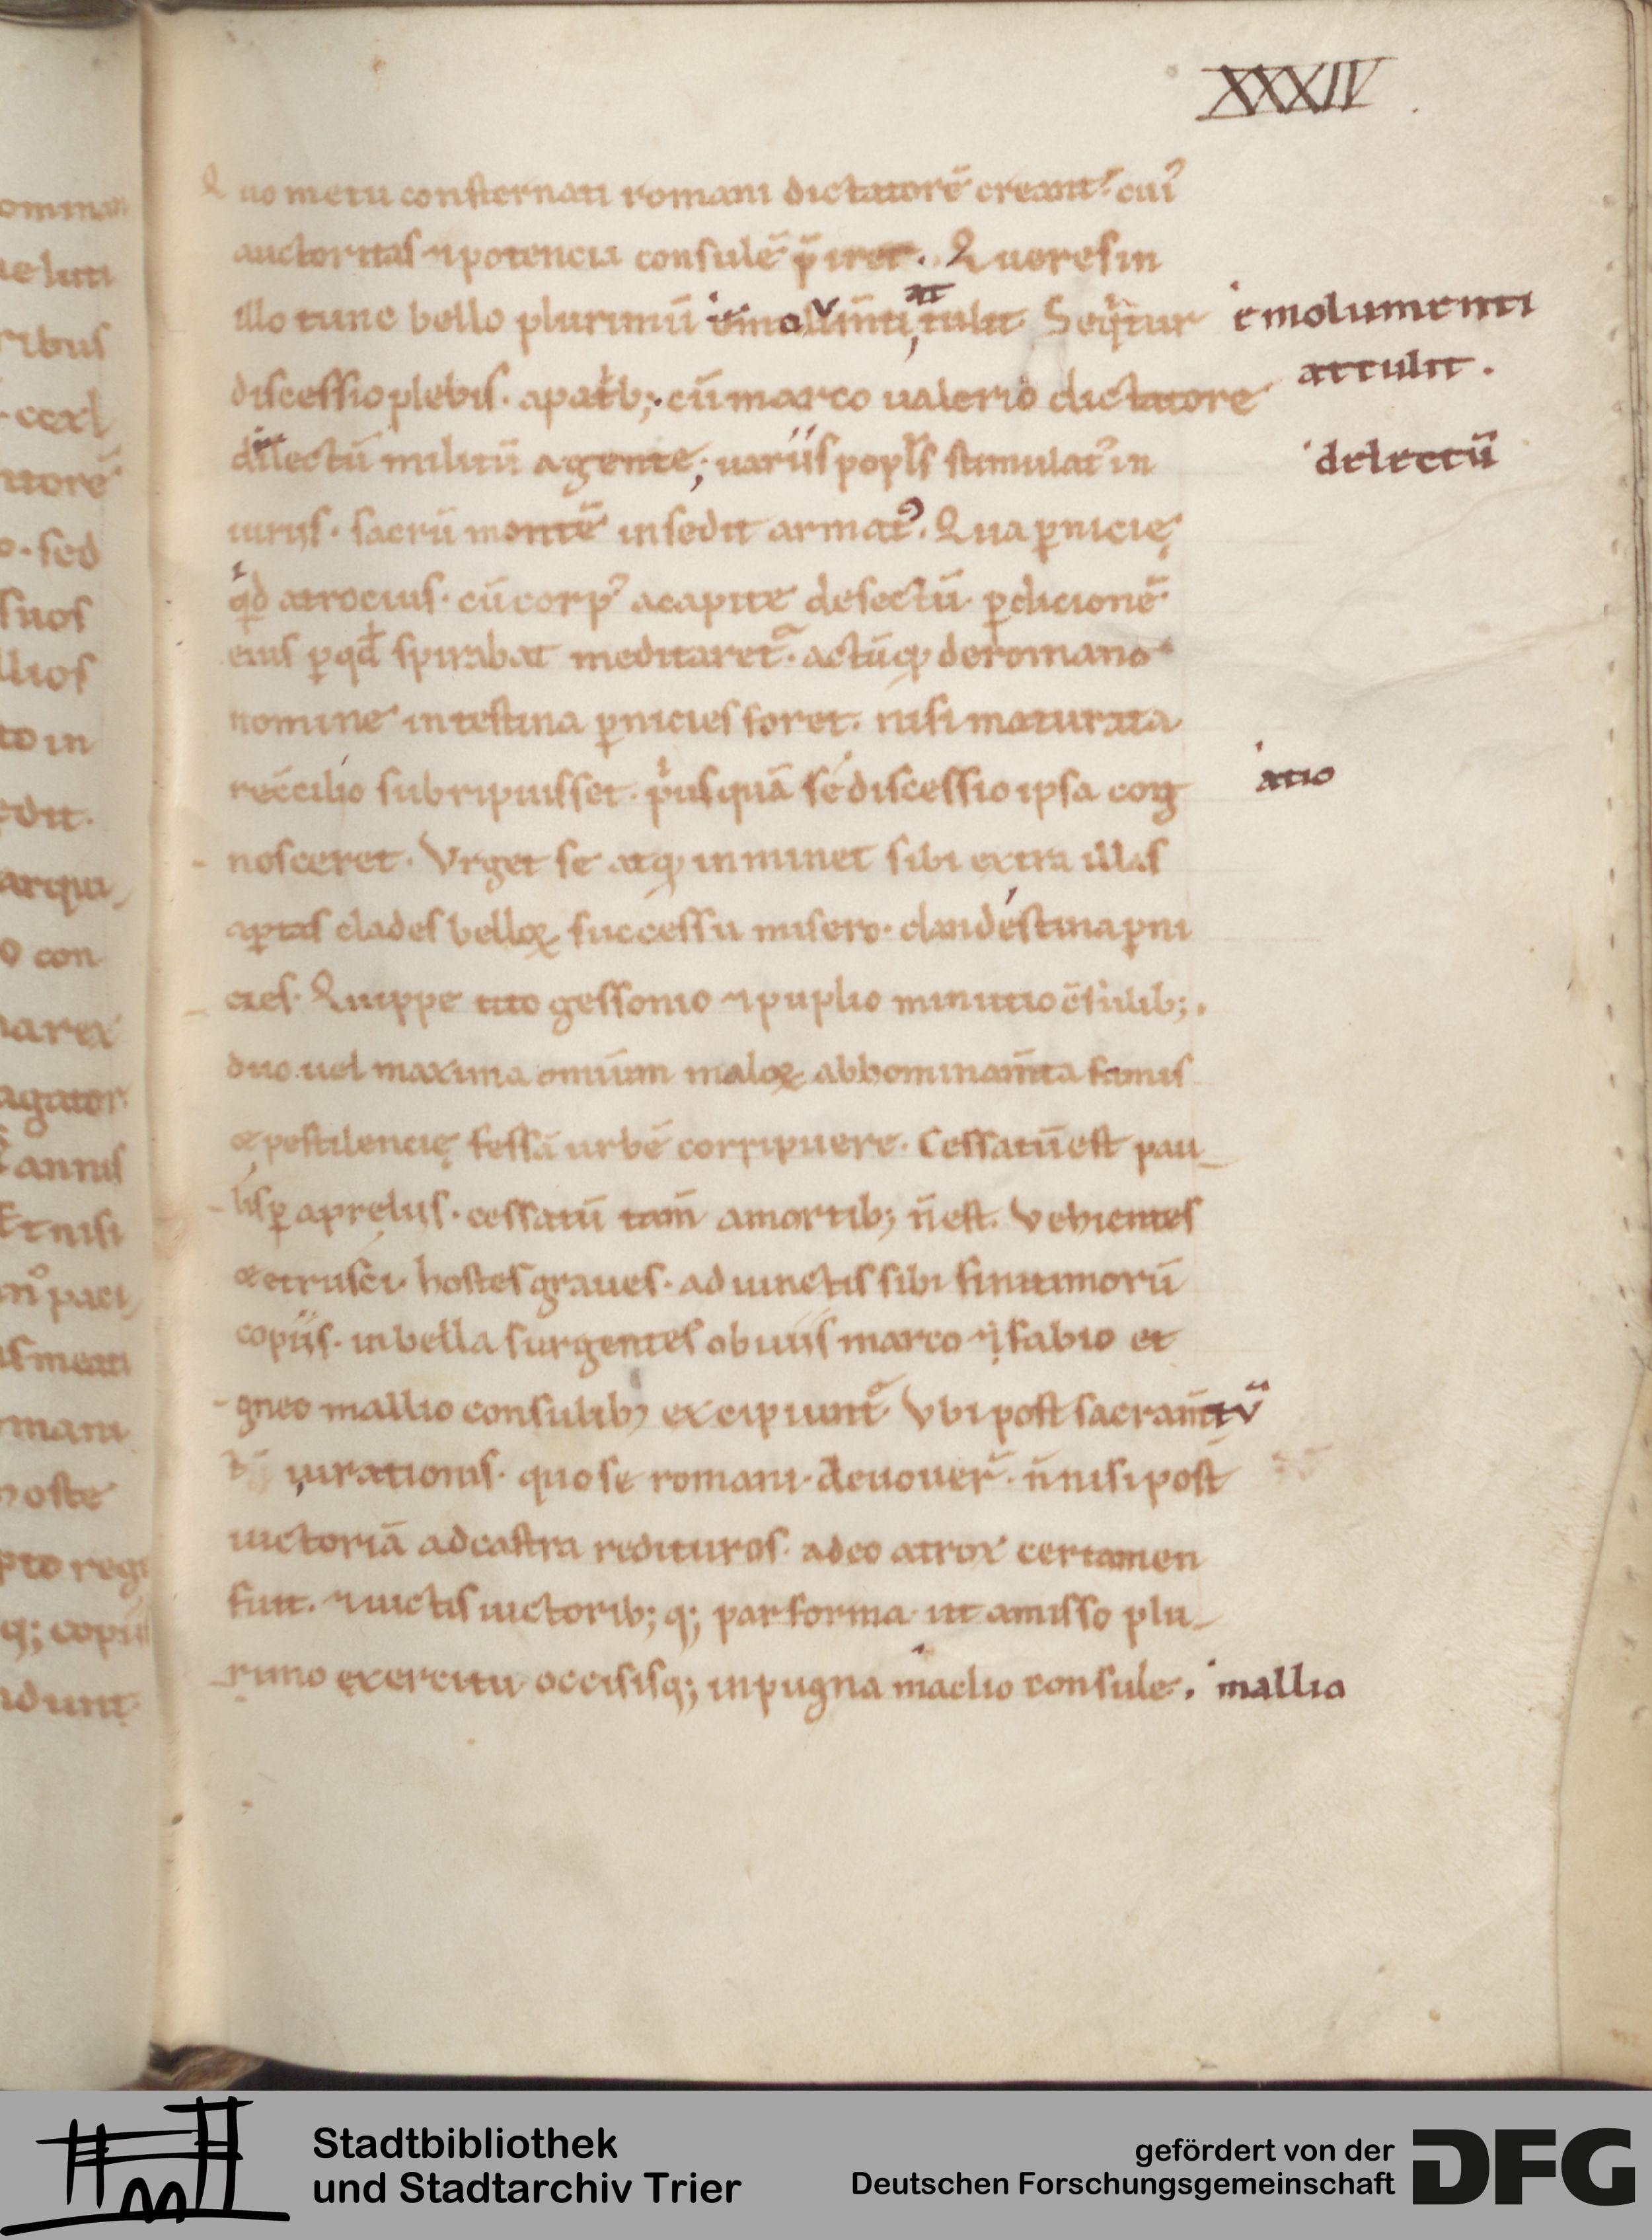 XXXIV
Quo metu consternati romani dictatorē creant. cui᾿
auctoritas ⁊ potencia consulē p̄iret. Que res in
illo tunc bello plurimū emolumti, tulit. Seqtur emolumenti
attulit.
discessio plebis. a patb; cū marco ualerio dictatore
dilectū militū agente; uariis popłs stimulat᾿ in delectū
iuriis. sacrū montē insedit armat᾿. Qua ꝑnicie
qd atrocius. cū corp᾿ a capite desectū. ꝑdicionē
eius ꝑ qd spirabat meditaret᾿. actūq; de romano
nomine intestina ꝑnicies foret. nisi maturata
recc̄ilio subripuisset. p'usquā se discessio ipsa cog atio
nosceret. Vrget se atq; inminet sibi extra illas
aꝑtas clades belloꝝ successu misero. clandestina ꝑni
cies. Quippe tito gessonio ⁊ puplio minutio c̄sulib;.
duo uel maxima omium maloꝝ abhominam̄ta famis
& pestilencie fessā urbē corripuere. Cessatū est pau
lisꝑ a prelus. cessatū tam̄ a mortib; n̄ est. Vehientes
& etrusci. hostes graues. adiunctis sibi finitimorū
copiis. in bella surgentes obuiis marco ⁊ fabio et
gneo mallio consulib; excipiunt᾿. Vbi post sacram̄tū
iurationis. quo se romani. deuouer̄. n̄ nisi post
uictoriā ad castra redituros. adeo atrox certamen
fuit. ⁊ uictis uictorib; q; par forma. ut amisso plu
rimo exercitu occisisq; in pugna maclio consule. mallio
Stadtbibliothek
und Stadtarchiv Trier
gefördert von der
Deutschen Forschungsgemeinschaft
DFG